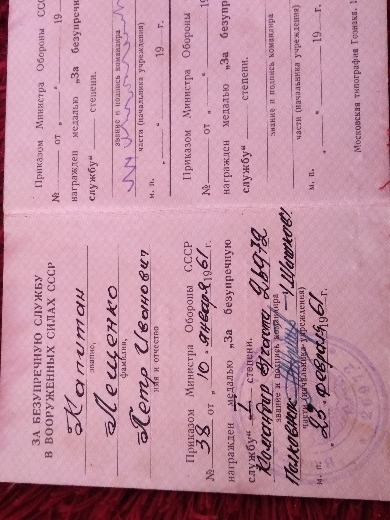 ЗА БЕЗУПРЕЧНУЮ СЛУЖБУ
В ВООРУЖЕННЫХ СИЛАХ СССР
Капитан
звание,
Лещенко
фамилия,
Петр Иванович
имя и отчество
Приказом Министра Обороны СССР
№ 38 от „10“ января 1961 г.
награжден медалью „За безупречную
службу“ I степени.
Командир в/части 26972
звание и подпись командира
Полковник
части (начальника учреждения)
м. п. „23“ февраля 1961 г.
Приказом Министра Обороны СССР
№ от „ “ 19
награжден медалью „За безупречную
службу“ степени.
звание и подпись командира
части (начальника учреждения)
м. п. „ “ 19 г.
Приказом Министра Обороны
№ от „ “
награжден медалью „За безупречную
службу“ степени.
звание и подпись командира
части (начальника учреждения)
м. п. „ “ 19 г.
Московская типография Гознака.